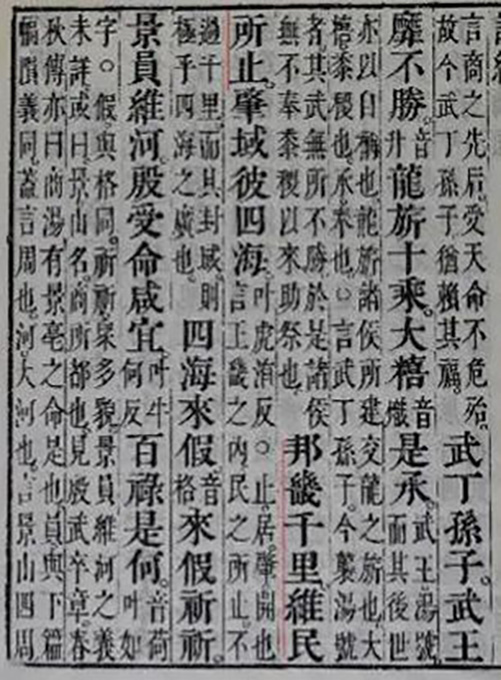 言商之先后受天命不危殆
故今武丁孫子猶賴其福
武丁孫子。武王
靡不勝。音升龍旂十乘。大糦音熾是承。武王湯號
而其後世
亦以自稱也龍旂諸侯所建交龍之旂也大
糦黍稷也承奉也○言武丁孫子今襲湯號
者其武無所不勝於是諸侯
無不奉黍稷以來助祭也
邦畿千里維民
所止。肇域彼四海。叶虎洧反○止居肇開也
言王畿之內民之所止不
過千里而其封域則
極乎四海之廣也
四海來假音格來假祈祈。
景員維河。殷受命咸宜。叶牛何反百祿是何。音荷叶如
字○假與格同祈祈衆多貌景員維河之義
未詳或曰景山名商所都也見殷武卒章春
秋傳亦曰商湯有景亳之命是也員與下篇
幅隕義同蓋言周也河大河也言景山四周